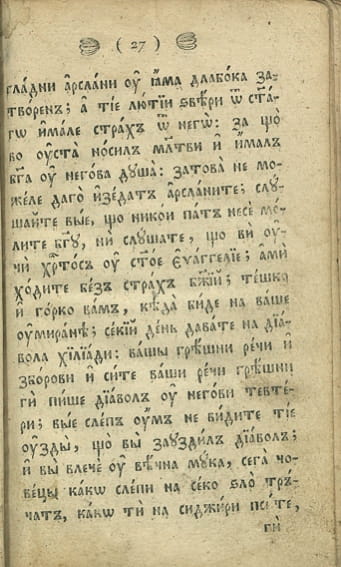 ( 27 )
гла́дни а҆рсла́ни оу҆ ꙗ҆́ма длабо́ка за-
тво́рен​ъ; а҆ ті́е лю́тїи ѕвѣ́ри ѿ ст҃а́-
гѡ и҆ма́ле стра́хъ ѿ не́гѡ: за що̀
во оу҆ста̀ но́силъ мл҃тви и҆ и҆́малъ
бг҃а оу҆ не́гова ду́ша: зато́ва не мо-
же́ле даго̀ и҆зеда́тъ а҆рсла́ните; слꙋ́-
шайте вы́е, що нико́и па́тъ несѐ мо́-
лите бг҃ꙋ, ни́ слꙋ́шате, що ви оу҆-
чѝ хрⷭ҇то́съ оу҆ ст҃о́е є҆ѵа́ггелїе; а҆мѝ
хо́дите бе́зъ стра́хъ бж҃їй; те́шко
и҆ го́рко ва́мъ, кѣда̀ би́де на ва́ше
оу҆мира́нѣ; се́кїй де́нь да́вате на дїа́-
вола хїлїа́ди: ва́шы грѣ́шни ре́чи и҆
збо́рови и҆ си́те ва́ши ре́чи грѣ́шни
гѝ пи́ше дїа́волъ оу҆ не́гови тевтє́-
ри; вы́е слѣ́пъ оу҆́мъ не ви́дите ті́е
оу҆́зды, що вы̀ заузди́лъ дїа́волъ;
и҆ вы влечѐ оу҆ вѣ́чна мꙋ́ка, сега̀ чо-
ве́цы ка́кѡ слѣ́пи на се́ко ѕло̀ тръ́-
чатъ, ка́кѡ тѝ на си́джири пси́те,
гѝ